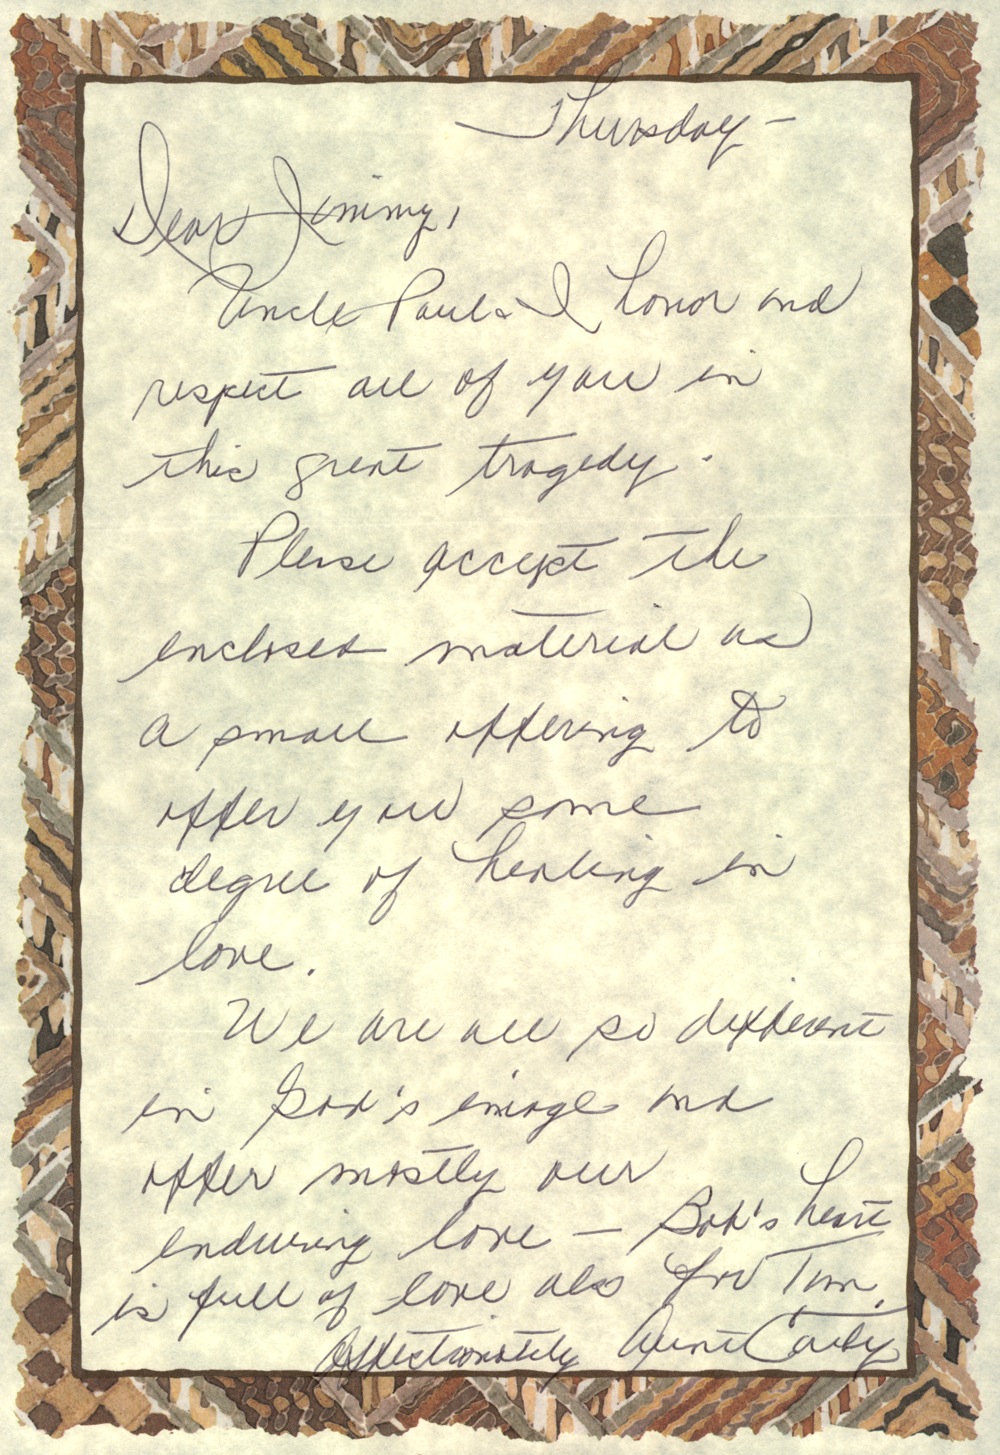 Thursday -
Dear Jimmy,
Uncle Paul & I honor and
respect all of you in
this great tragedy.
Please accept the
enclosed material as
a small offering to
offer you some
degree of healing in
love.
We are all so different
in God's image and
offer mostly our
enduring love - God's heart
is full of love also for Tim.
Affectionately Aunt